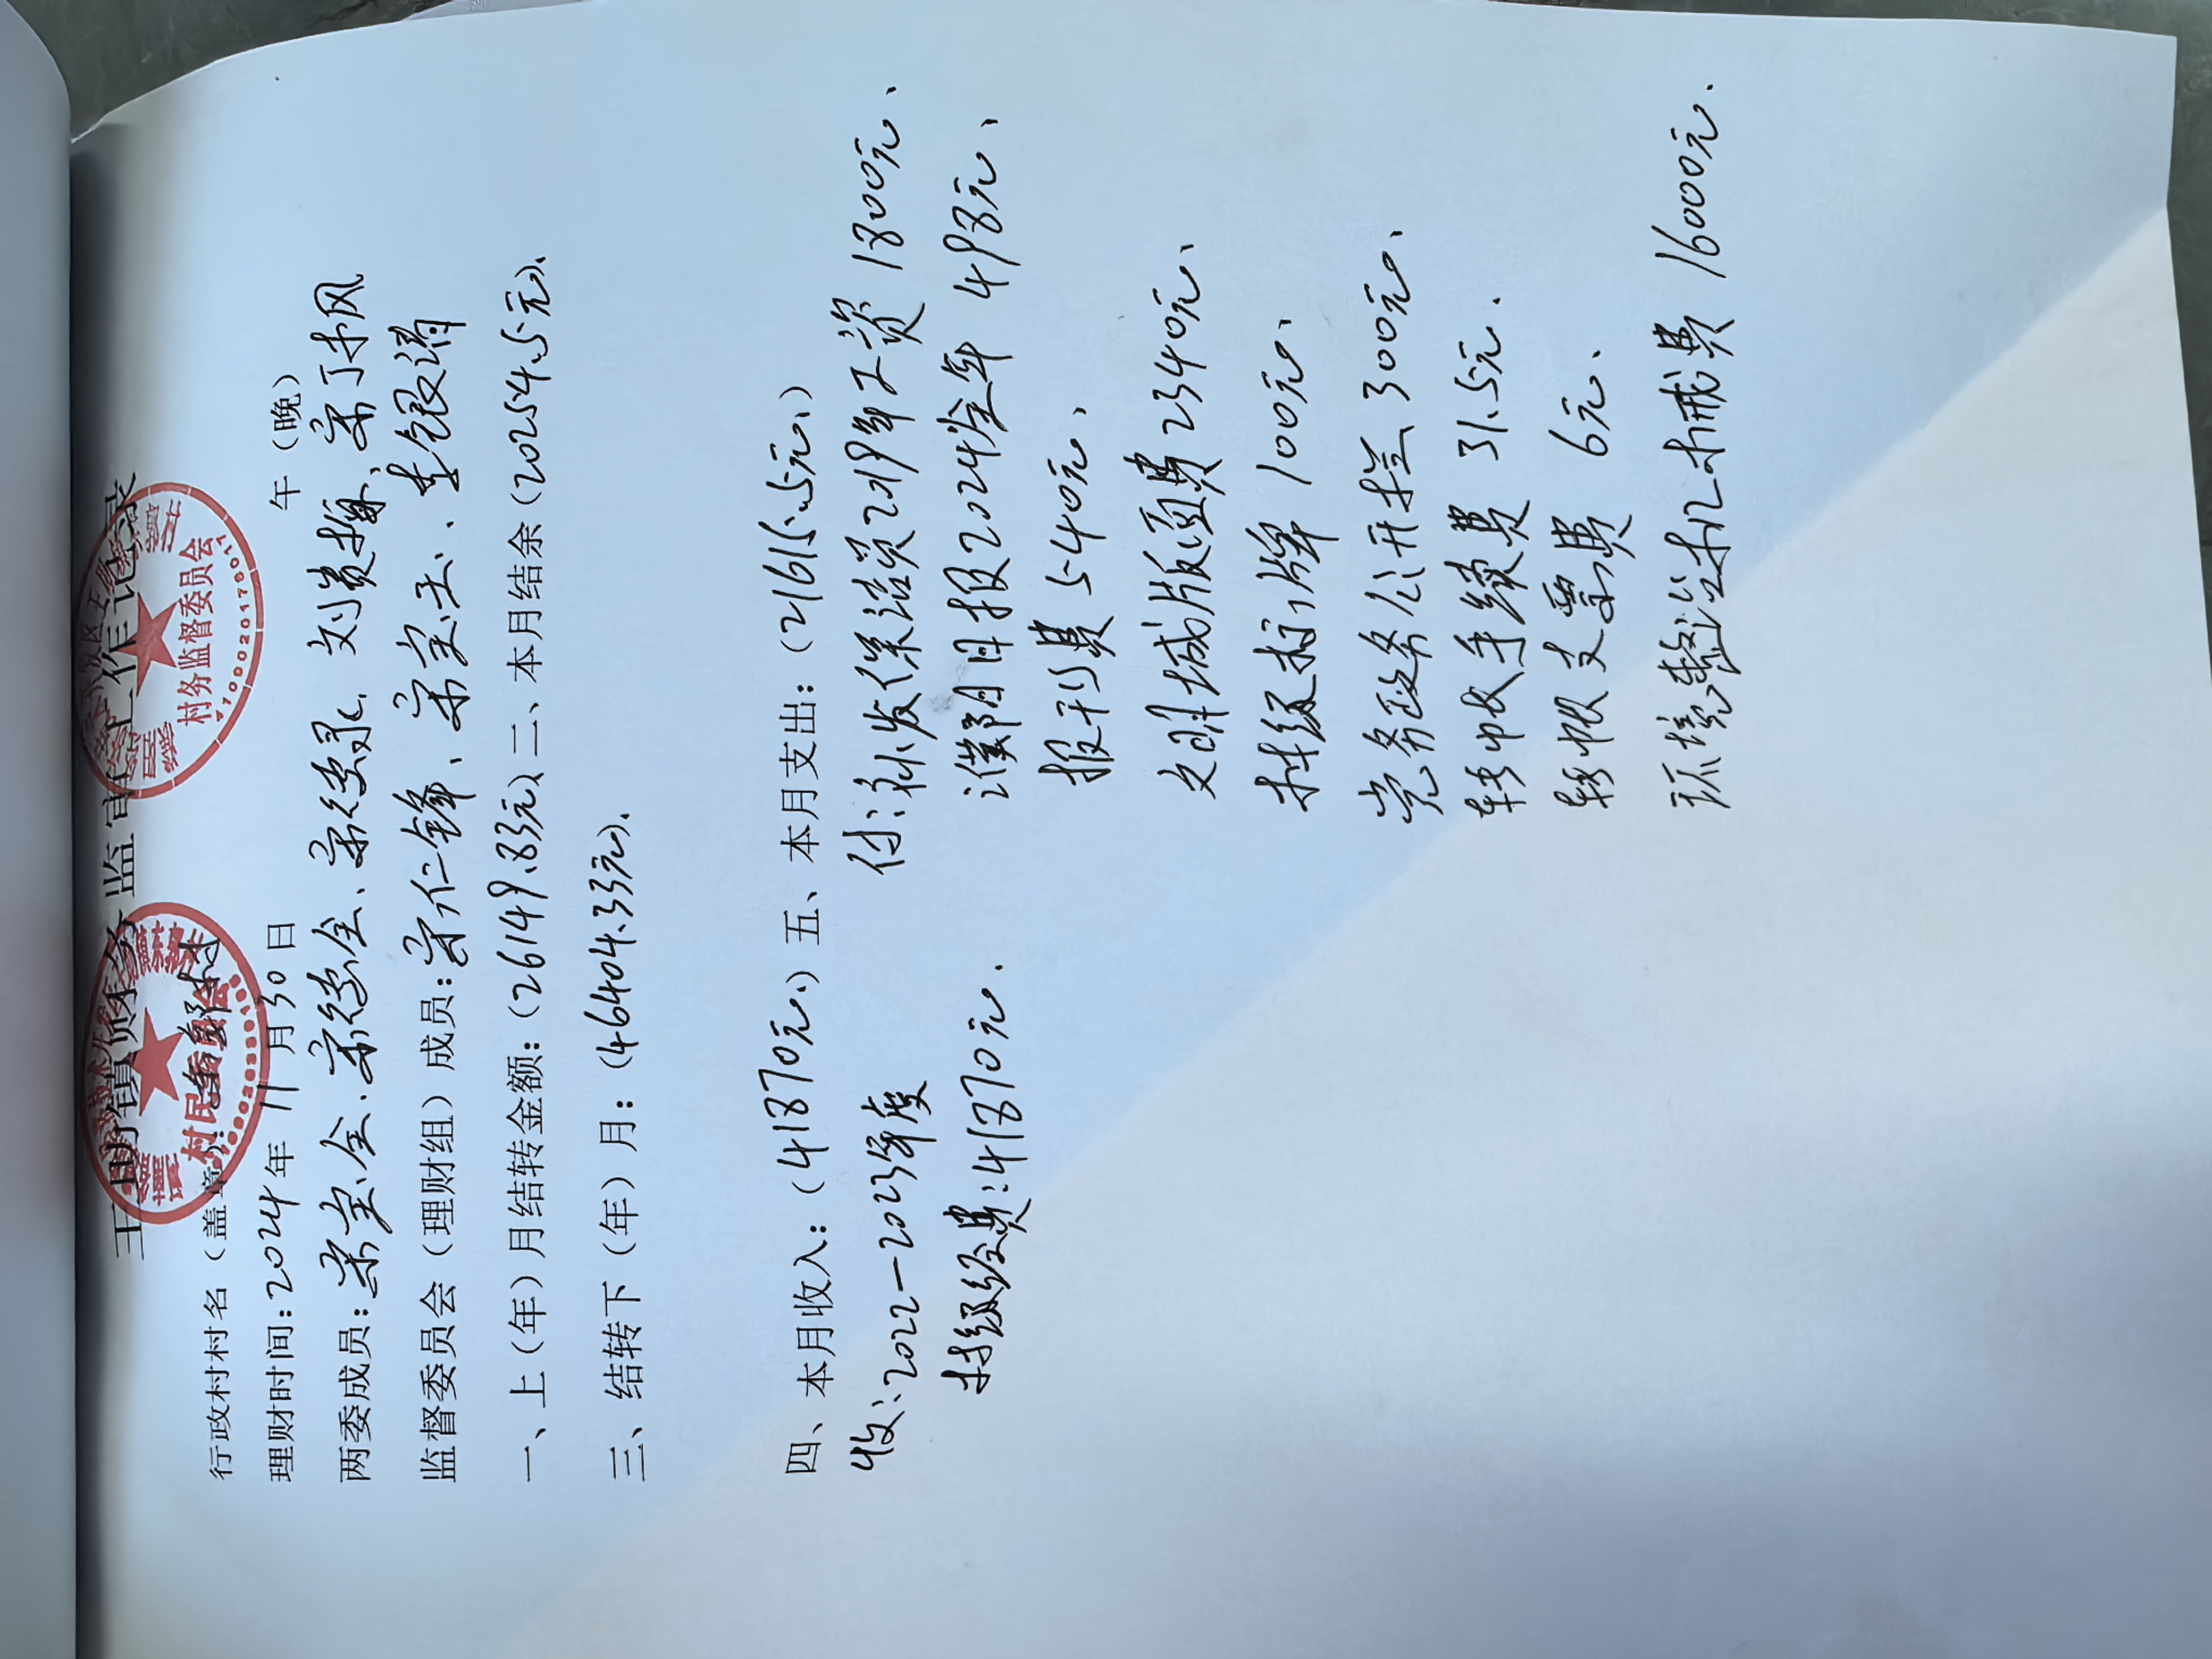 王助镇财务监审工作记录
村民委员会
村务监督委员会
行政村村名（盖章）：
理财时间：2024年 11月30日 午（晚）
两委成员：宗宝全、宗德全、宗德全、宗德录、刘贵梅、宗丁风
监督委员会（理财组）成员：宗仁锋、宗宝玉、李银清
一、上（年）月结转金额：（26149.83元）、二、本月结余（20254.5元）、
三、结转下（年）月：（46404.33元）、
四、本月收入：（41870元、）五、本月支出：（21615.5元、）
收：2022—2023年度
村级经费：41870元．
付：补发保洁员2019年工资 1800元、
濮阳日报2024全年 498元、
报刊费 540元、
文明城版面费 2340元、
村级标门牌 100元、
党务政务公开栏 300元、
转帐手续费 31.5元．
转帐支票费 6元、
环境整治机械费 16000元．